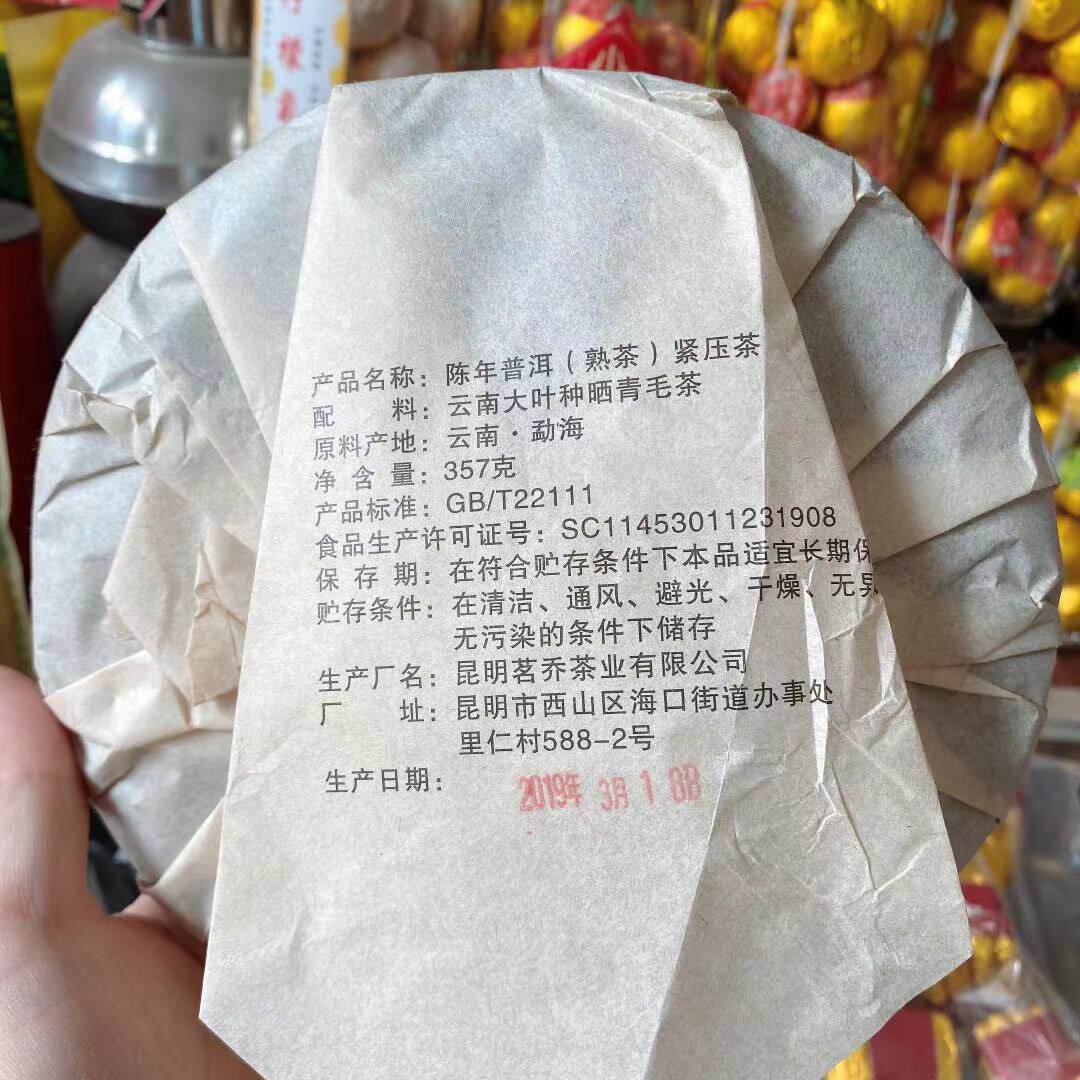 产品名称：陈年普洱（熟茶）紧压茶
配 料：云南大叶种晒青毛茶
原料产地：云南·勐海
净 含 量：357克
产品标准：GB/T22111
食品生产许可证号：SC11453011231908
保 存 期：在符合贮存条件下本品适宜长期保
贮存条件：在清洁、通风、避光、干燥、无异
无污染的条件下储存
生产厂名：昆明茗乔茶业有限公司
厂 址：昆明市西山区海口街道办事处
里仁村588-2号
生产日期：
2019年 3月1